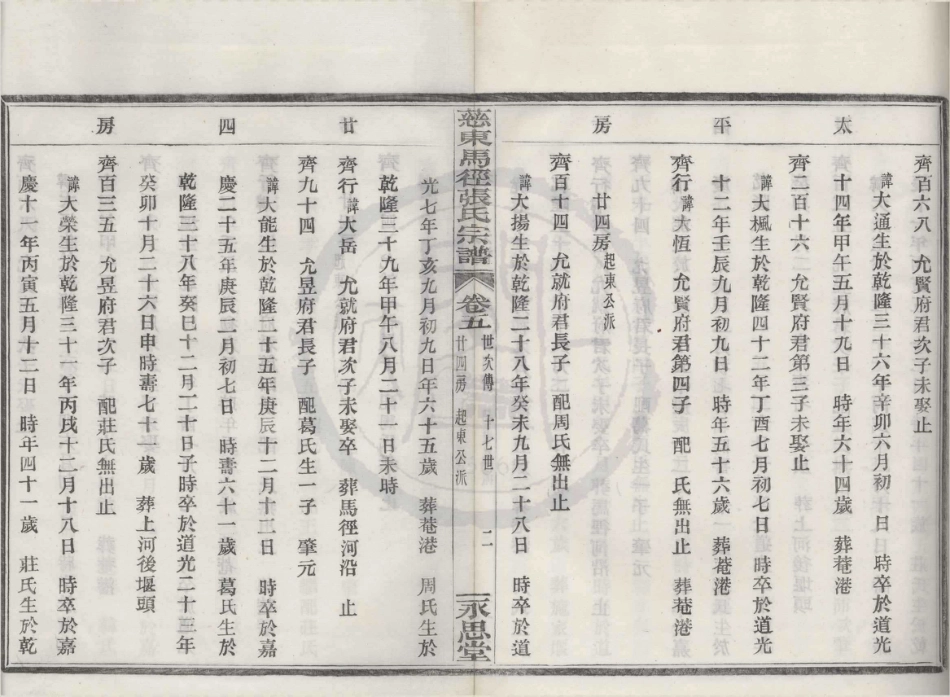 太平房
齊百六八 允賢府君次子未娶止
諱大通生於乾隆三十六年辛卯六月初 日 時卒於道光
十四年甲午五月十九日 時年六十四歲 葬菴港
齊二百十六 允賢府君第三子未娶止
諱大楓生於乾隆四十二年丁酉七月初七日 時卒於道光
十二年壬辰九月初九日 時年五十六歲 葬菴港
齊行 諱大恆 允賢府君第四子 配 氏無出止 葬菴港
廿四房起東公派
齊百十四 允就府君長子 配周氏無出止
諱大揚生於乾隆二十八年癸未九月二十八日 時卒於道
慈東馬徑張氏宗譜 卷五 世次傳 十七世 廿四房 起東公派 二 永思堂
廿四房
光七年丁亥九月初九日年六十五歲 葬菴港 周氏生於
乾隆三十九年甲午八月二十一日未時
齊行 諱大岳 允就府君次子未娶卒 葬馬徑河沿 止
齊九十四 允昱府君長子 配葛氏生一子 肇元
諱大能生於乾隆二十五年庚辰十二月十三日 時卒於嘉
慶二十五年庚辰二月初七日 時壽六十一歲 葛氏生於
乾隆三十八年癸巳十二月二十日子時卒於道光二十三年
癸卯十月二十六日申時壽七十一歲 葬上河後堰頭
齊百三五 允昱府君次子 配莊氏無出止
諱大榮生於乾隆三十一年丙戌十二月十八日 時卒於嘉
慶十一年丙寅五月十二日 時年四十一歲 莊氏生於乾